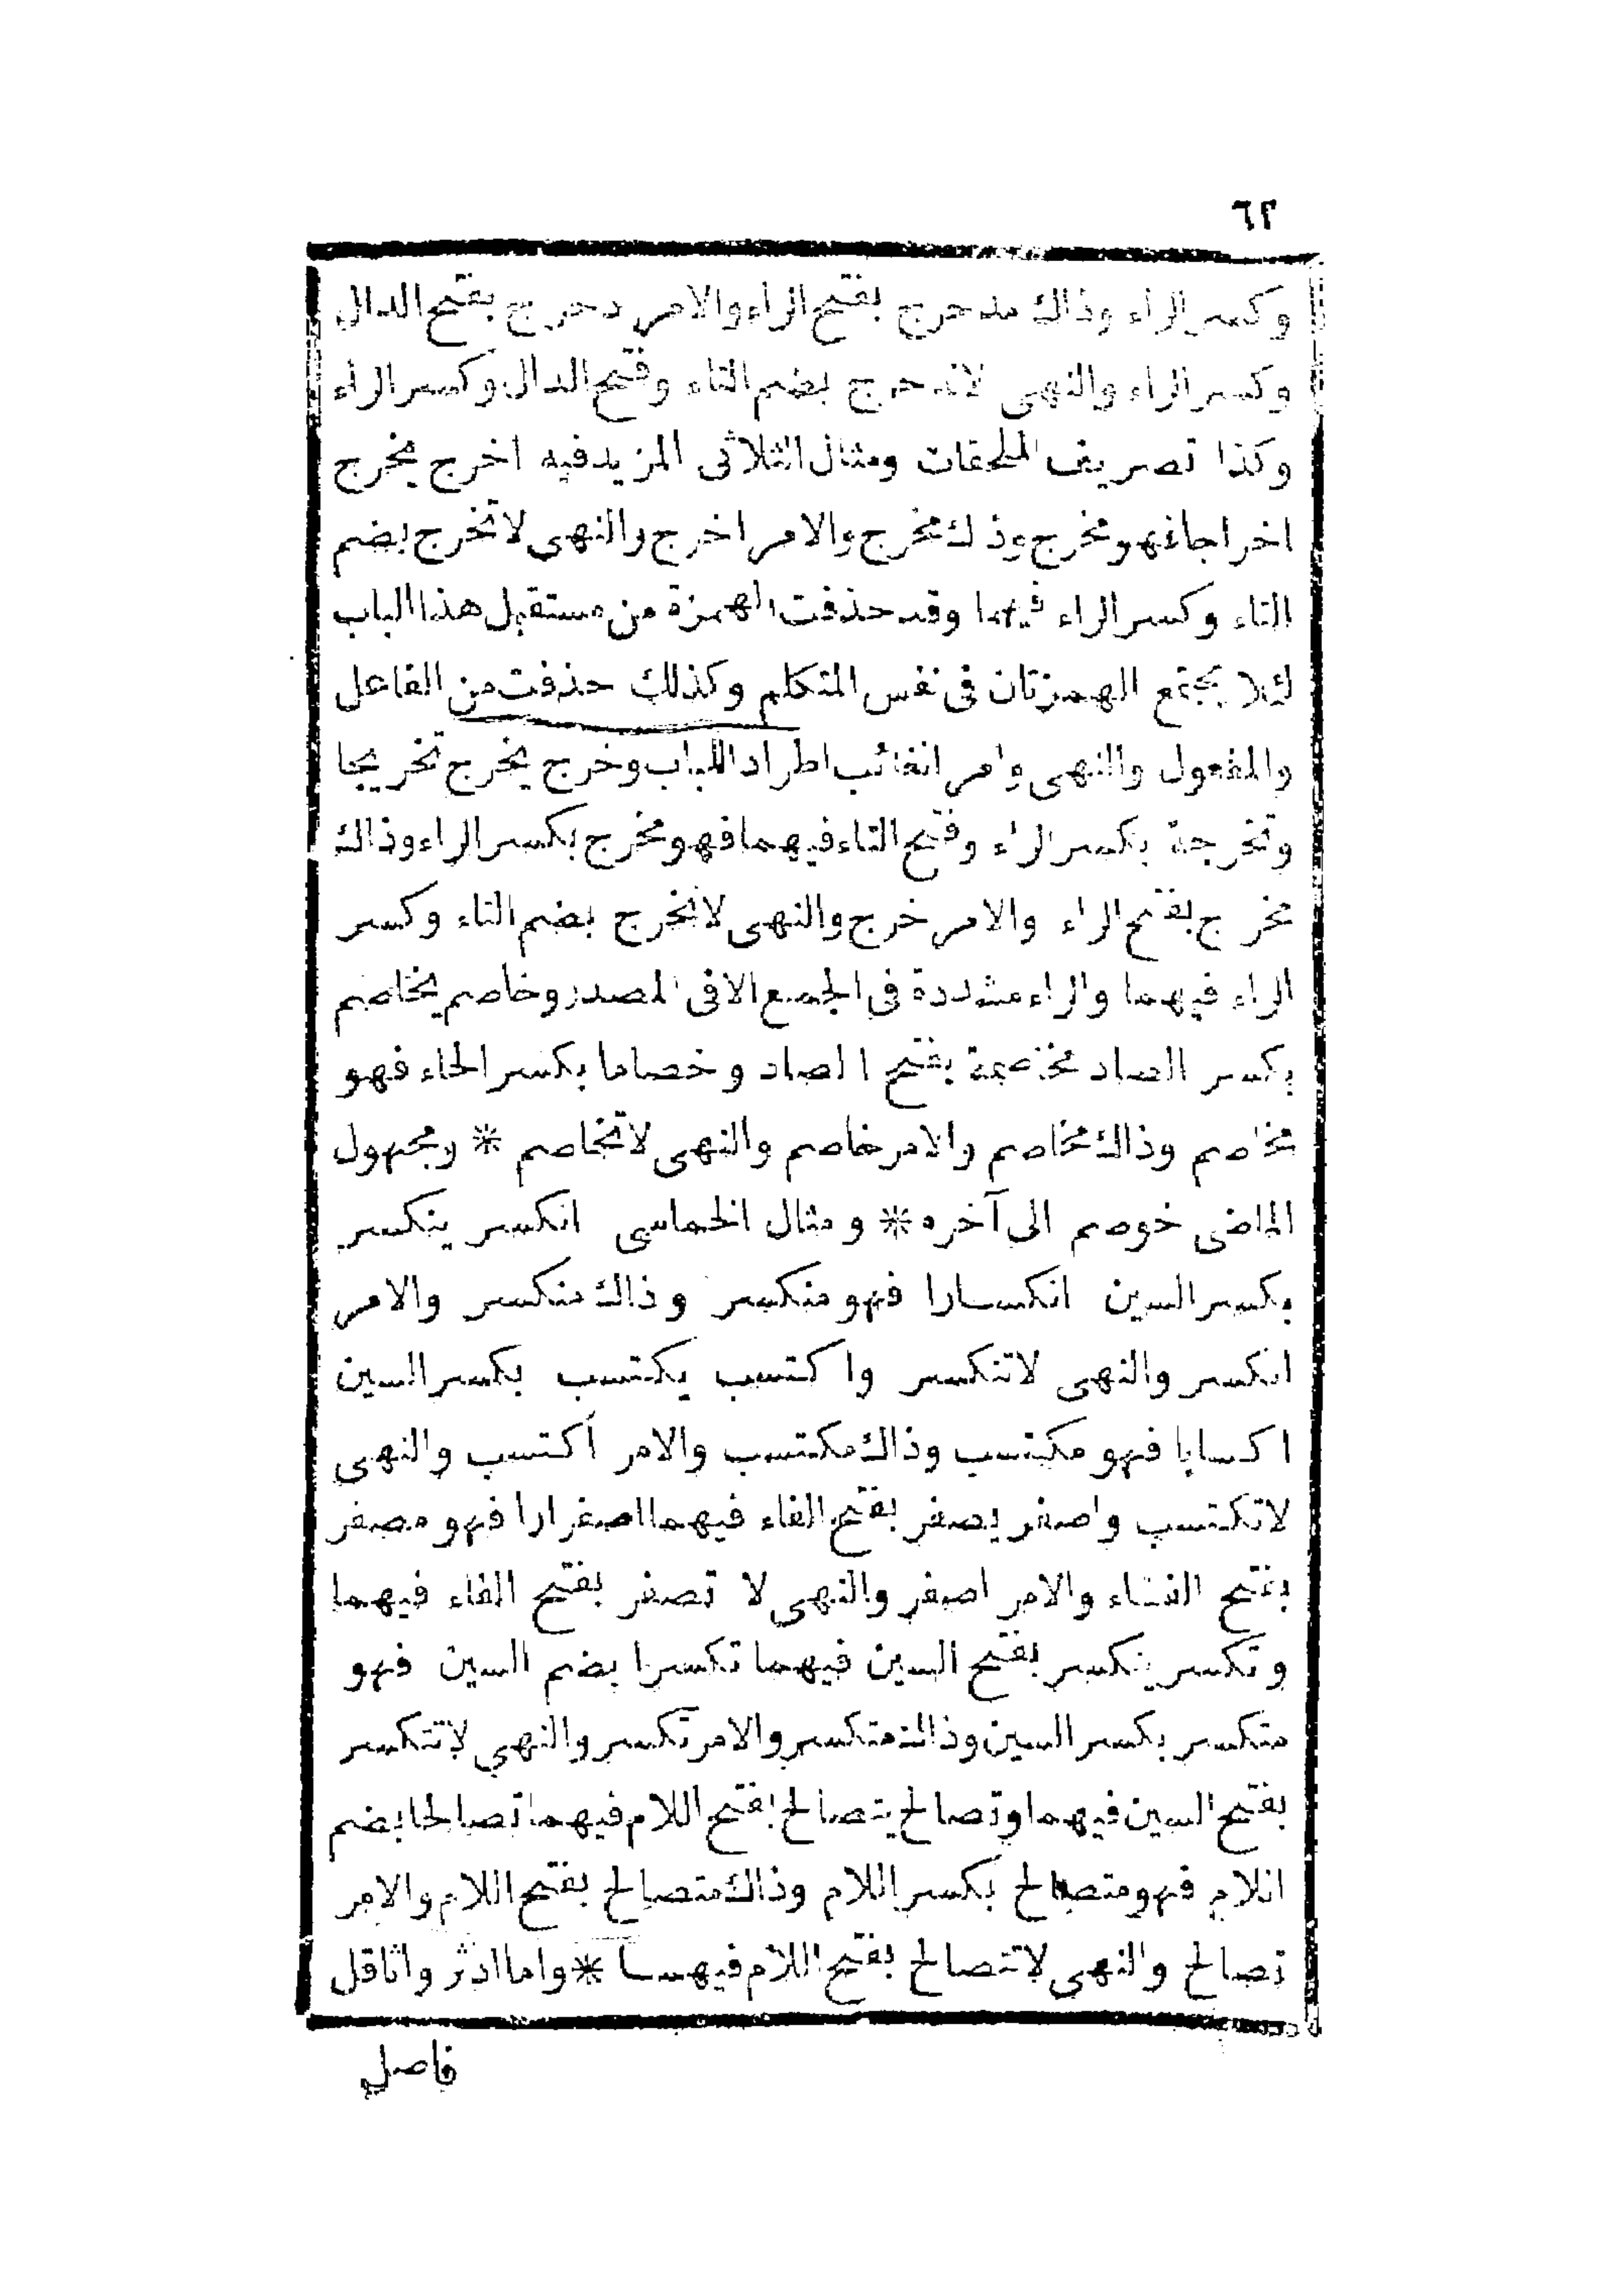 ٦٢
وكسر الراء وذاك مدحرج بفتح الراء والامر دحرج بفتح الدال
وكسر الراء والنهى لاتدحرج بضم التاء وفتح الدال وكسر الراء
وكذا تصريف الملحقات ومثال الثلاثى المزيد فيه اخرج يخرج
اخراجا فهو مخرج وذاك مخرج والامر اخرج والنهى لاتخرج بضم
التاء وكسر الراء فيهما وقد حذفت الهمزة من مستقبل هذا الباب
لئلا يجتمع الهمزتان فى نفس المتكلم وكذلك حذفت من الفاعل
والمفعول والنهى وامر الغائب اطرادا للباب وخرج يخرج تخريجا
وتخرجة بكسر الراء وفتح التاء فيهما فهو مخرج بكسر الراء وذاك
مخرج بفتح الراء والامر خرج والنهى لاتخرج بضم التاء وكسر
الراء فيهما والراء مشددة فى الجميع الا فى المصدر وخاصم يخاصم
بكسر الصاد مخاصمة بفتح الصاد وخصاما بكسر الخاء فهو
مخاصم وذاك مخاصم والامر خاصم والنهى لاتخاصم * ومجهول
الماضى خوصم الى آخره * ومثال الخماسى انكسر ينكسر
بكسر السين انكسارا فهو منكسر وذاك منكسر والامر
انكسر والنهى لاتنكسر واكتسب يكتسب بكسر السين
اكتسابا فهو مكتسب وذاك مكتسب والامر اكتسب والنهى
لاتكتسب واصفر يصفر بفتح الفاء فيهما اصفرارا فهو مصفر
بفتح الفاء والامر اصفر والنهى لا تصفر بفتح الفاء فيهما
وتكسر يتكسر بفتح السين فيهما تكسرا بضم السين فهو
متكسر بكسر السين وذاك متكسر والامر تكسر والنهى لاتتكسر
بفتح السين فيهما وتصالح يتصالح بفتح اللام فيهما تصالحا بضم
اللام فهو متصالح بكسر اللام وذاك متصالح بفتح اللام والامر
تصالح والنهى لاتتصالح بفتح اللام فيهما * واما ادثر واثاقل
فاصل